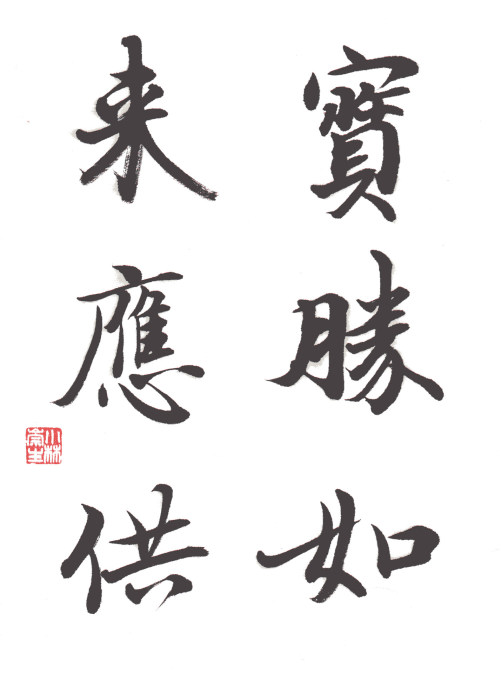 寶勝如
来應供
小林